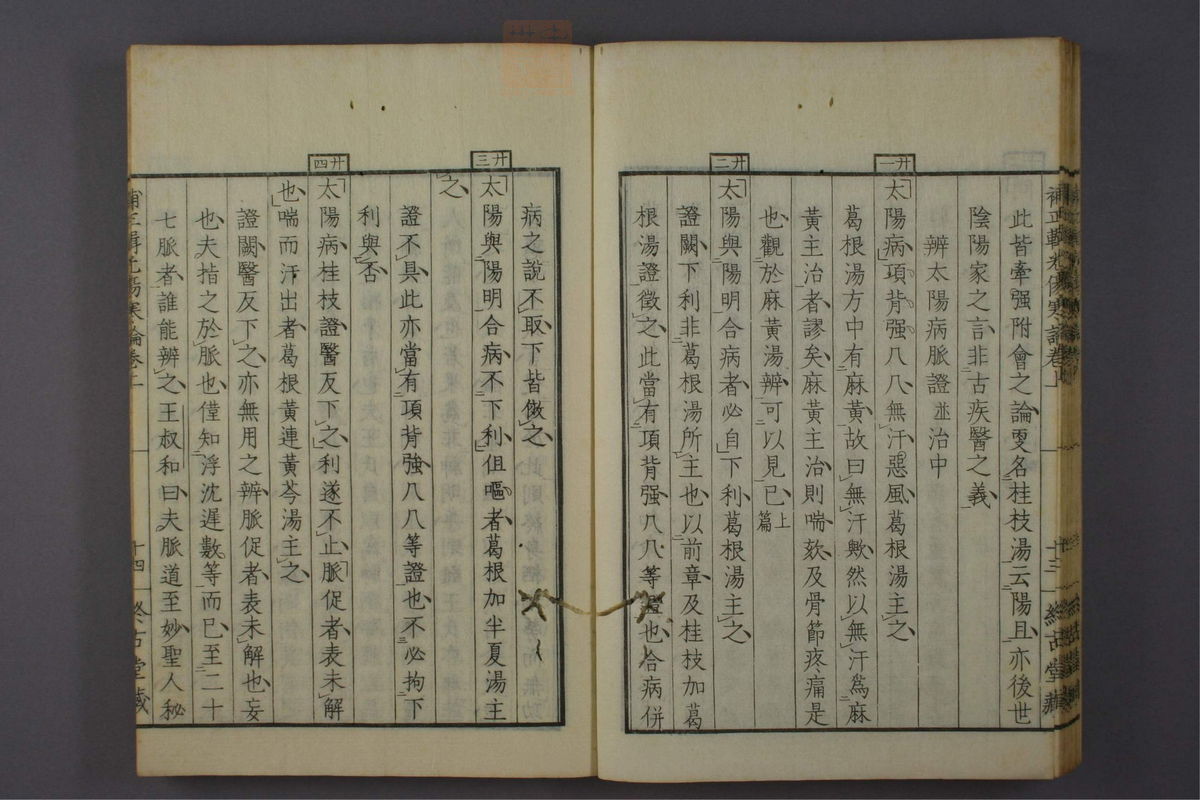 補正輯光傷寒論卷上 十三 終古堂藏
此皆牽強附會之論耳名桂枝湯云陽旦亦後世
陰陽家之言非古疾醫之義
辨太陽病脈證並治中
卅一
太陽病項背强八八無汗惡風葛根湯主之
葛根湯方中有麻黃故曰無汗歟然以無汗爲麻
黃主治者謬矣麻黃主治則喘欬及骨節疼痛是
也觀於麻黃湯辨可以見已上篇
卅二
太陽與陽明合病者必自下利葛根湯主之
證闕下利非葛根湯所主也以前章及桂枝加葛
根湯證徵之此當有項背强八八等證也合病併
病之說不取下皆傚之
卅三
太陽與陽明合病不下利但嘔者葛根加半夏湯主
之
證不具此亦當有項背強八八等證也不必拘下
利與否
卅四
太陽病桂枝證醫反下之利遂不止脈促者表未解
也喘而汗出者葛根黃連黃芩湯主之
證闕醫反下之亦無用之辨脈促者表未解也妄
也夫指之於脈也僅知浮沈遲數等而已至二十
七脈者誰能辨之王叔和曰夫脈道至妙聖人秘
補正輯光傷寒論卷上 十四 終古堂藏